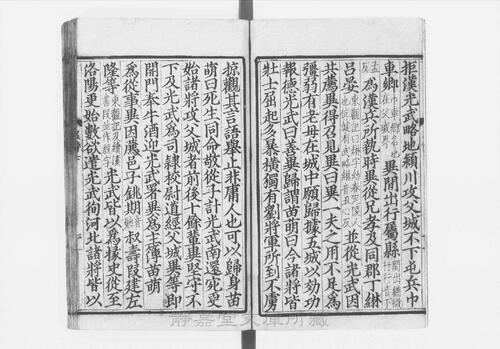 拒漢光武略地潁川攻父城不下屯兵巾
車鄉巾車鄉名也在父城界異閒出行屬縣
為漢兵所執時異從兄孝及同郡丁綝
呂晏並從光武因
共薦異得召見異曰異一夫之用不足為
彊弱有老母在城中願歸據五城以効功
報德光武曰善異歸謂苗萌曰今諸將皆
壯士屈起多暴橫獨有劉將軍所到不虜
掠觀其言語舉止非庸人也可以歸身苗
萌曰死生同命敬從子計光武南還宛更
始諸將攻父城者前後十餘輩異堅守不
下及光武為司隸校尉道經父城異等即
開門奉牛酒迎光武署異為主簿苗萌
為從事異因薦邑子銚期叔壽段建左
隆等東觀記及續漢書段並作殷字光武皆以為掾史從至
洛陽更始數欲遣光武徇河北諸將皆以
静嘉堂文庫所藏